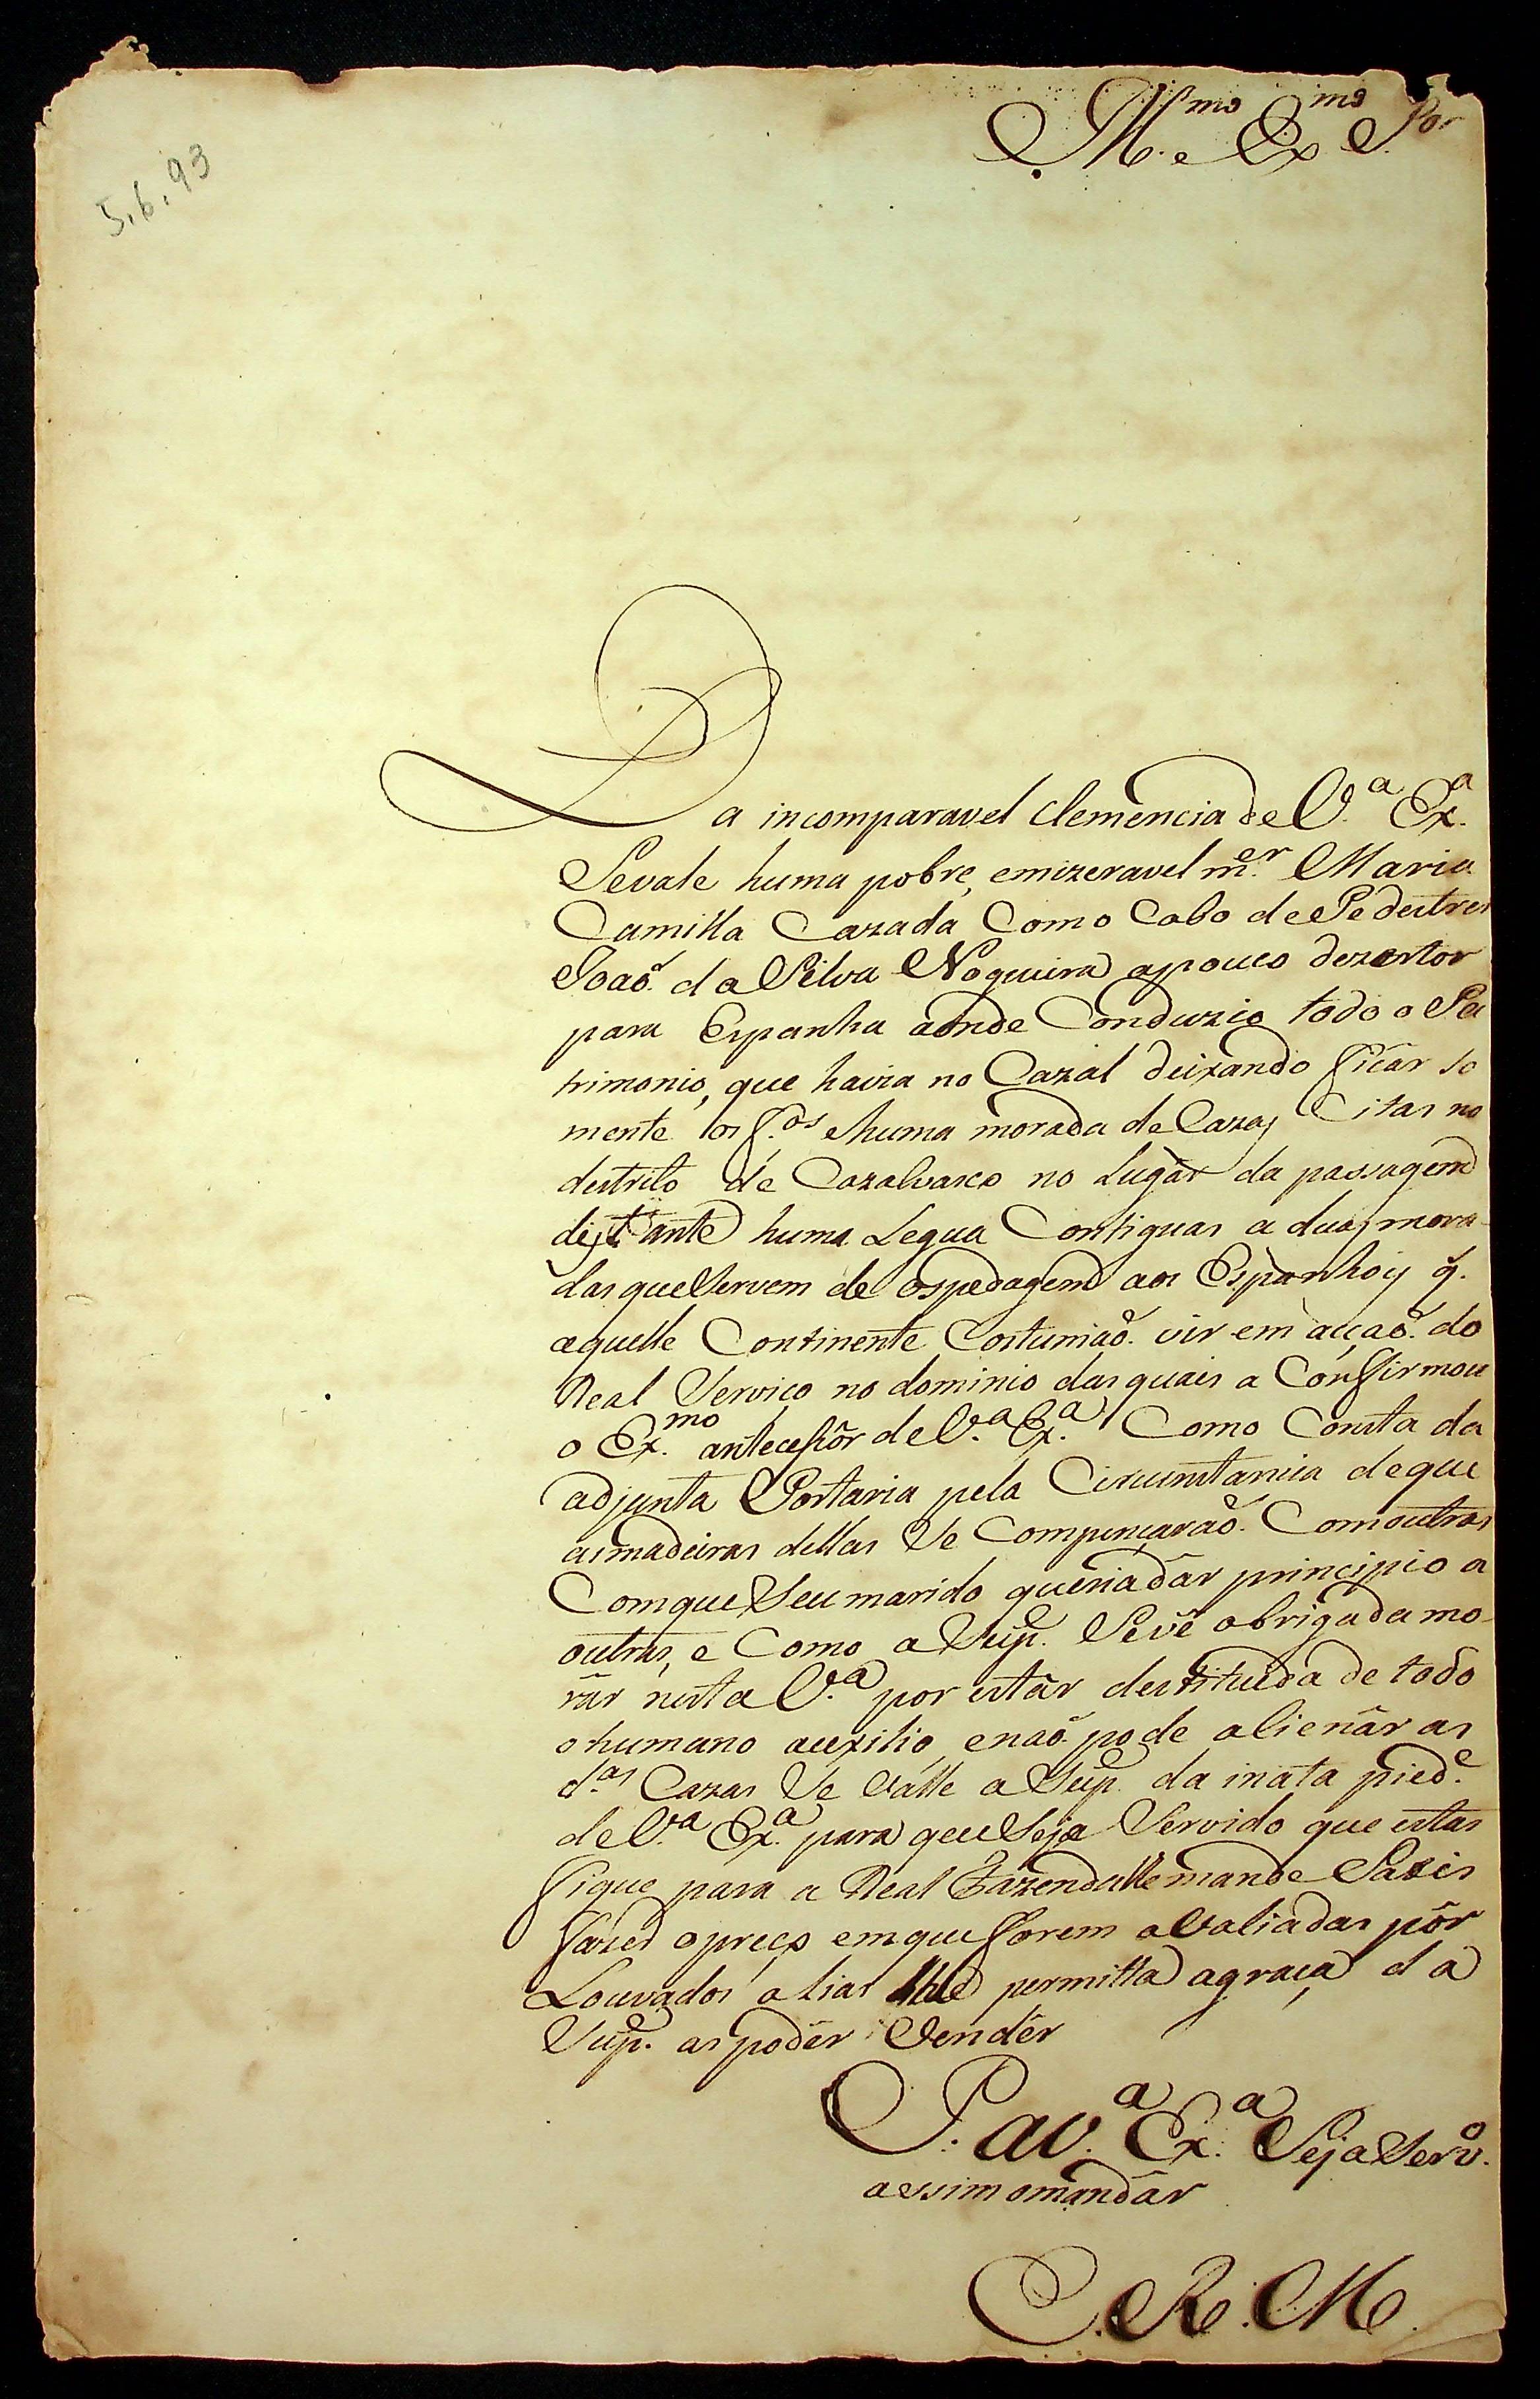 Ill.mo e Ex.mo S.or
5.6.93
Da incomparavel clemencia de V.a Ex.a
Sevale huma pobre, emizeravel m.er Maria
Camilla Cazada Como Cabo de Pedestres
Joaõ da Silva Nogueira apouco dezertor
para Espanha aonde Conduzio todo o Pa
trimonio, que havia no Cazal deixando ficár so
mente os f.os ehuma morada de Cazas Citas no
destrito de Cazalvasco no Lugár da passagem
distante huma Legua Contiguas a duas mora-
das que Servem de ospedagem aos Espanhois q̃.
aquelle Continente Costumaõ vir em acçaõ do
Real Serviço no dominio das quais a Confirmou
o Ex.mo antecessôr de V.a Ex.a Como Consta da
adjunta Portaria pela Circunstancia deque
asmadeiras dellas Se Compençaraõ Comoutras
Comque Seu marido queriadár principio a
outras, e Como a Sup.e Sevê obrigada mo-
rár nesta V.a por estár destituida de todo
o humano auxilio, enaõ pode alienár as
d.as Cazas Se Valle a Sup.e da inata pied.e
de V.a Ex.a para que Seja Servido que estas
fique para a Real Fazenda elle mande Satis
fazer opreço emque forem avaliadas pôr
Louvados alias lhe permitta agraça da
Sup.e aspodêr Vendêr
P. aV.a Ex.a Seja Serv.o
assim omandár
E. R. M.